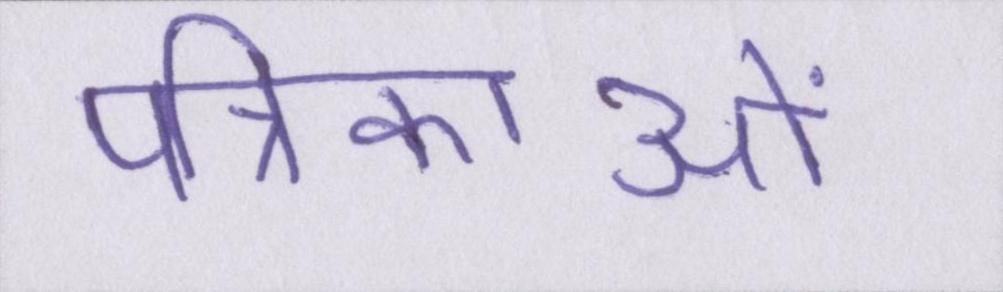 पत्रिकाओं